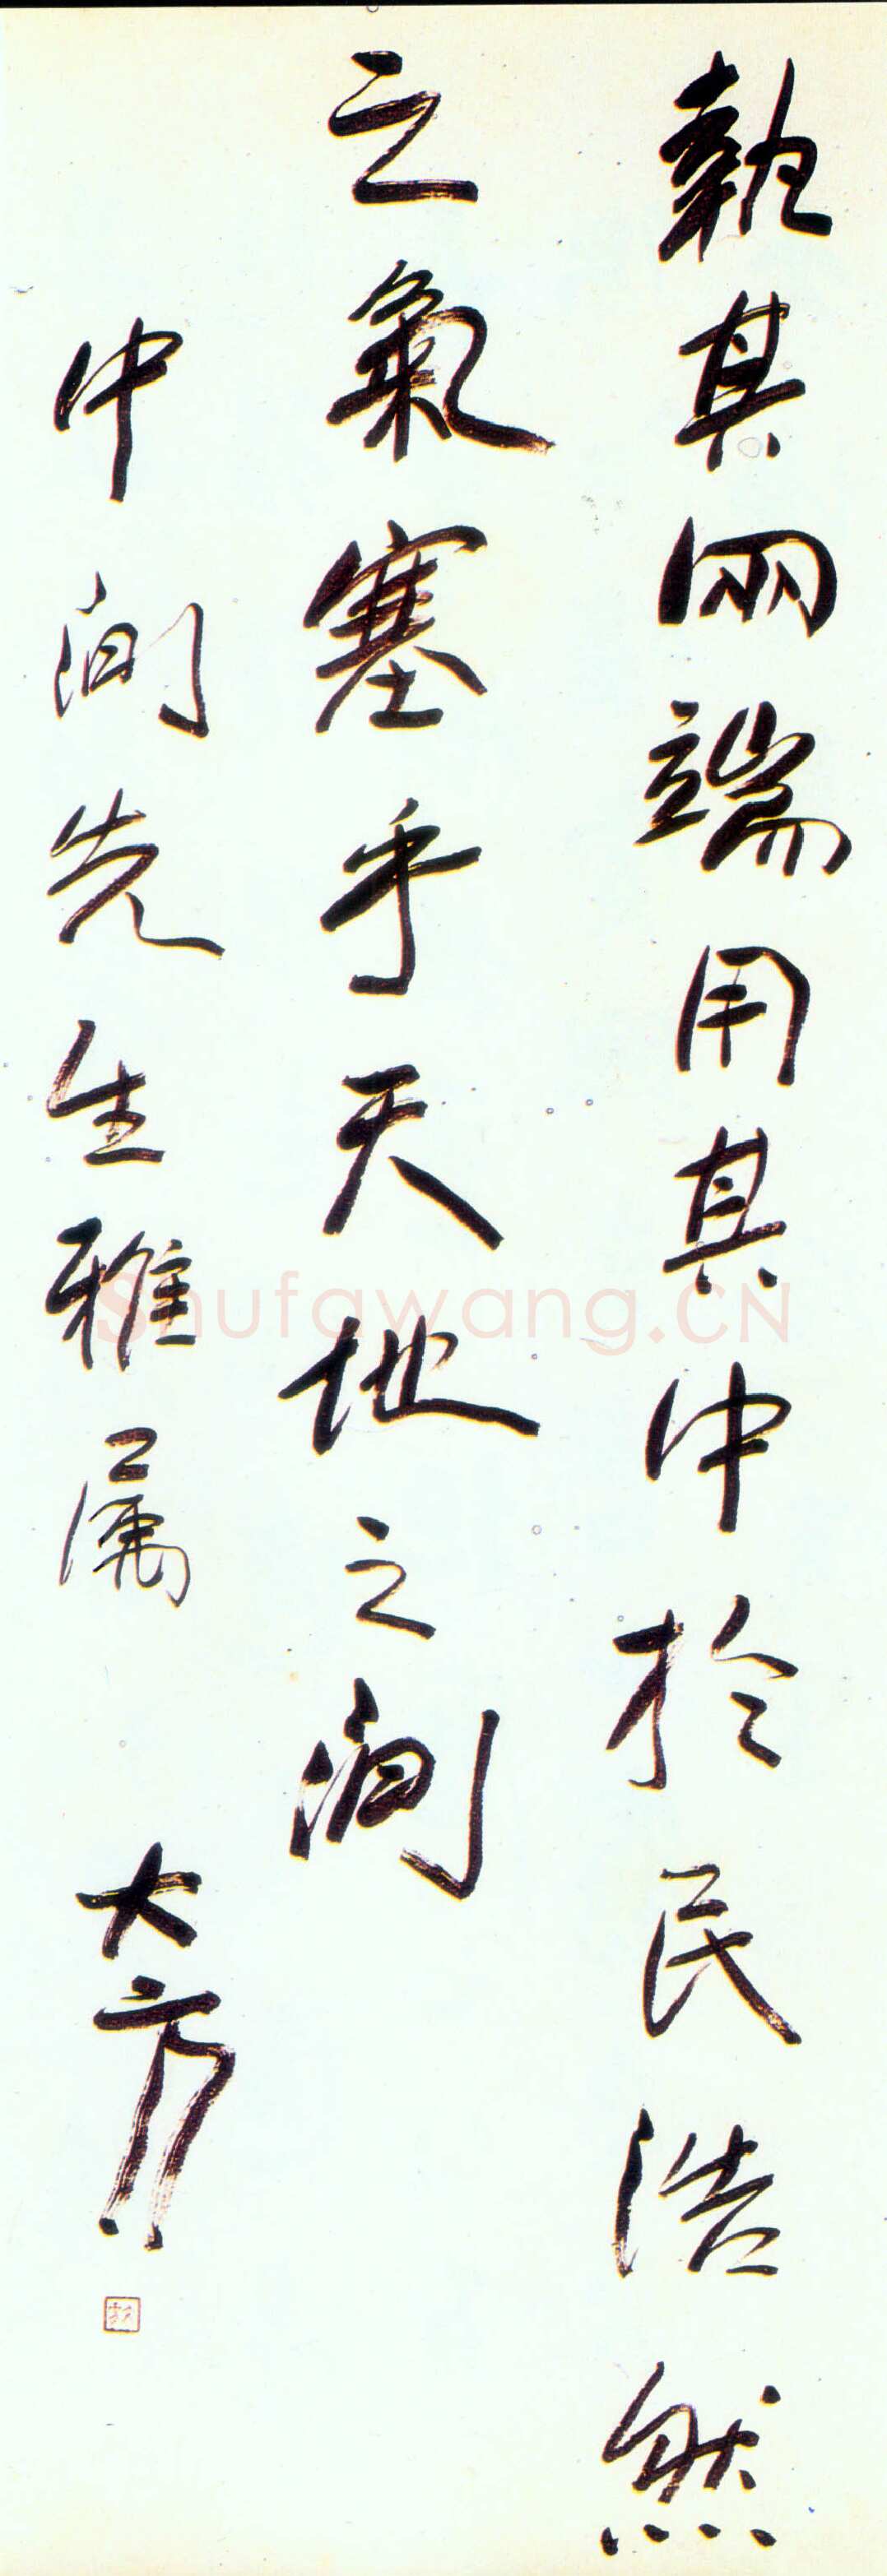 執其兩端用其中於民浩然
之氣塞乎天地之間
中間先生雅属
大方
Shufawang.CN